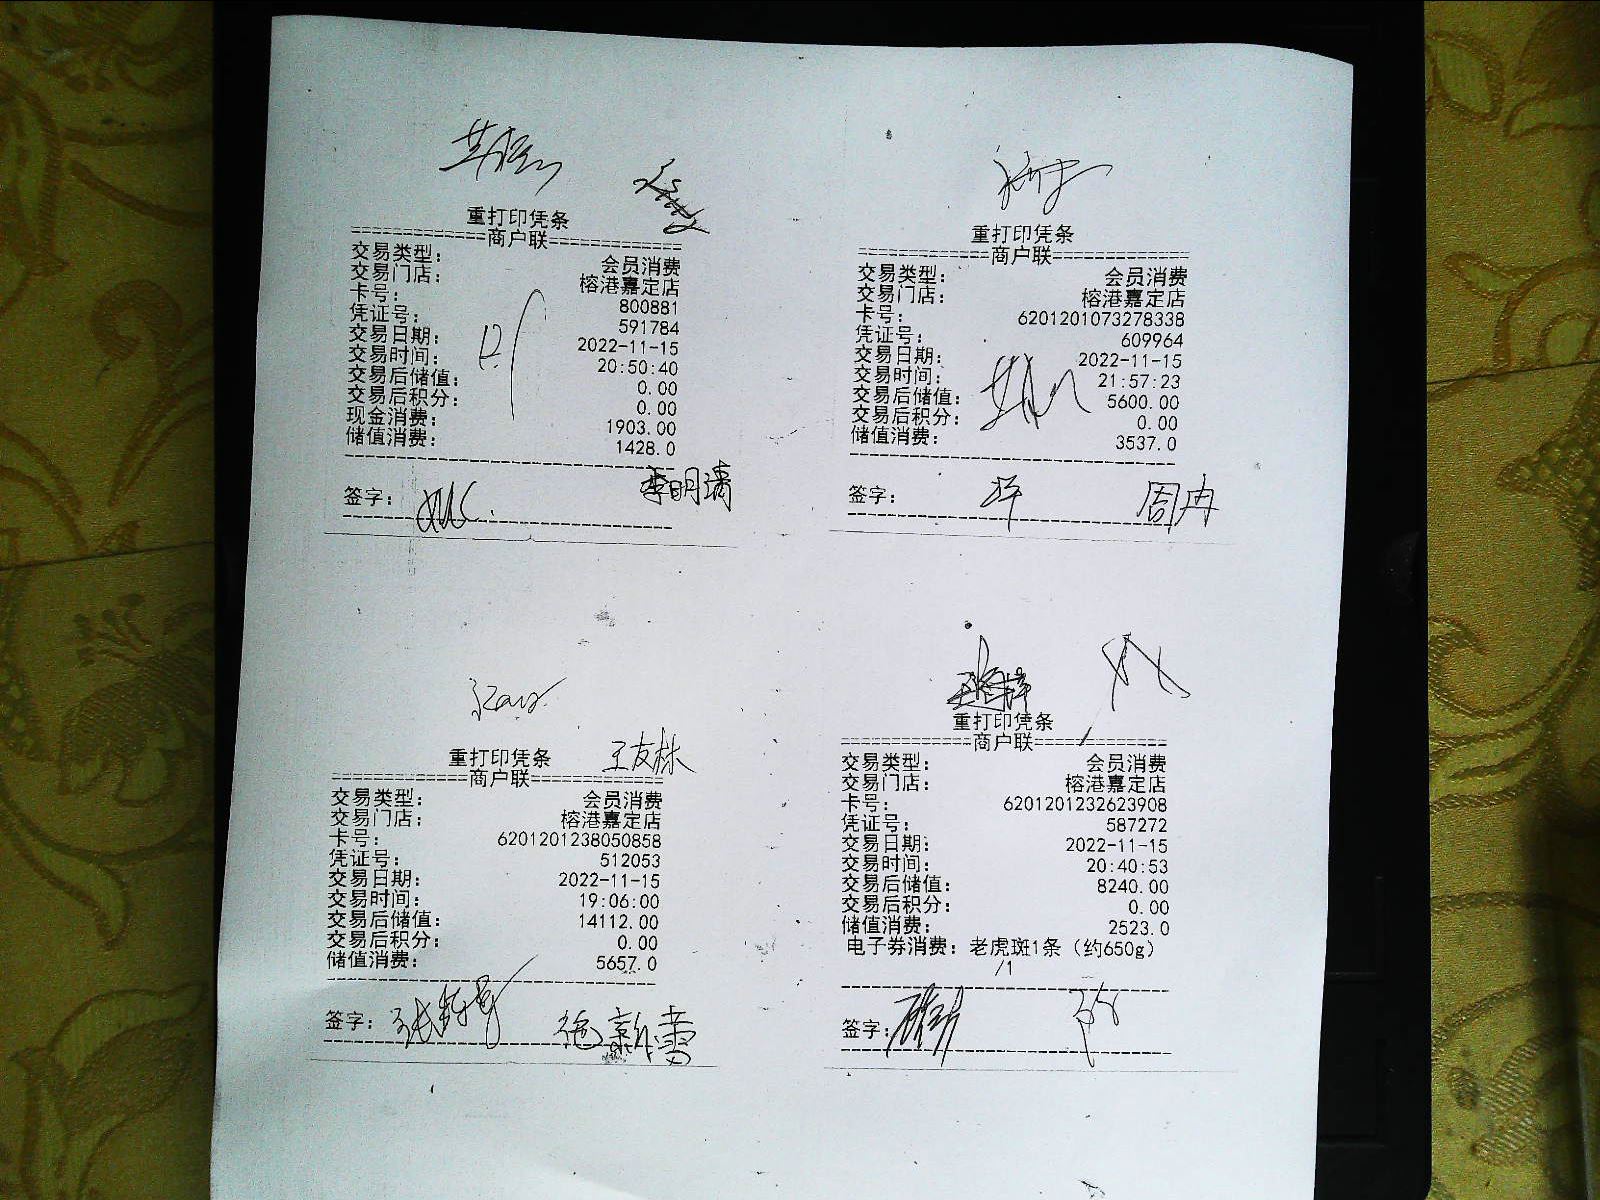 重打印凭条
=============商户联=============
交易类型： 会员消费
交易门店： 榕港嘉定店
卡号： 800881
凭证号： 591784
交易日期： 2022-11-15
交易时间： 20:50:40
交易后储值： 0.00
交易后积分： 0.00
现金消费： 1903.00
储值消费： 1428.0
李明清
签字：
重打印凭条
=============商户联=============
交易类型： 会员消费
交易门店： 榕港嘉定店
卡号： 6201201073278338
凭证号： 609964
交易日期： 2022-11-15
交易时间： 21:57:23
交易后储值： 5600.00
交易后积分： 0.00
储值消费： 3537.0
签字： 周冉
王友林
重打印凭条
=============商户联=============
交易类型： 会员消费
交易门店： 榕港嘉定店
卡号： 6201201238050858
凭证号： 512053
交易日期： 2022-11-15
交易时间： 19:06:00
交易后储值： 14112.00
交易后积分： 0.00
储值消费： 5657.0
签字：
重打印凭条
=============商户联=============
交易类型： 会员消费
交易门店： 榕港嘉定店
卡号： 6201201232623908
凭证号： 587272
交易日期： 2022-11-15
交易时间： 20:40:53
交易后储值： 8240.00
交易后积分： 0.00
储值消费： 2523.0
电子券消费：老虎斑1条（约650g）
/1
签字：